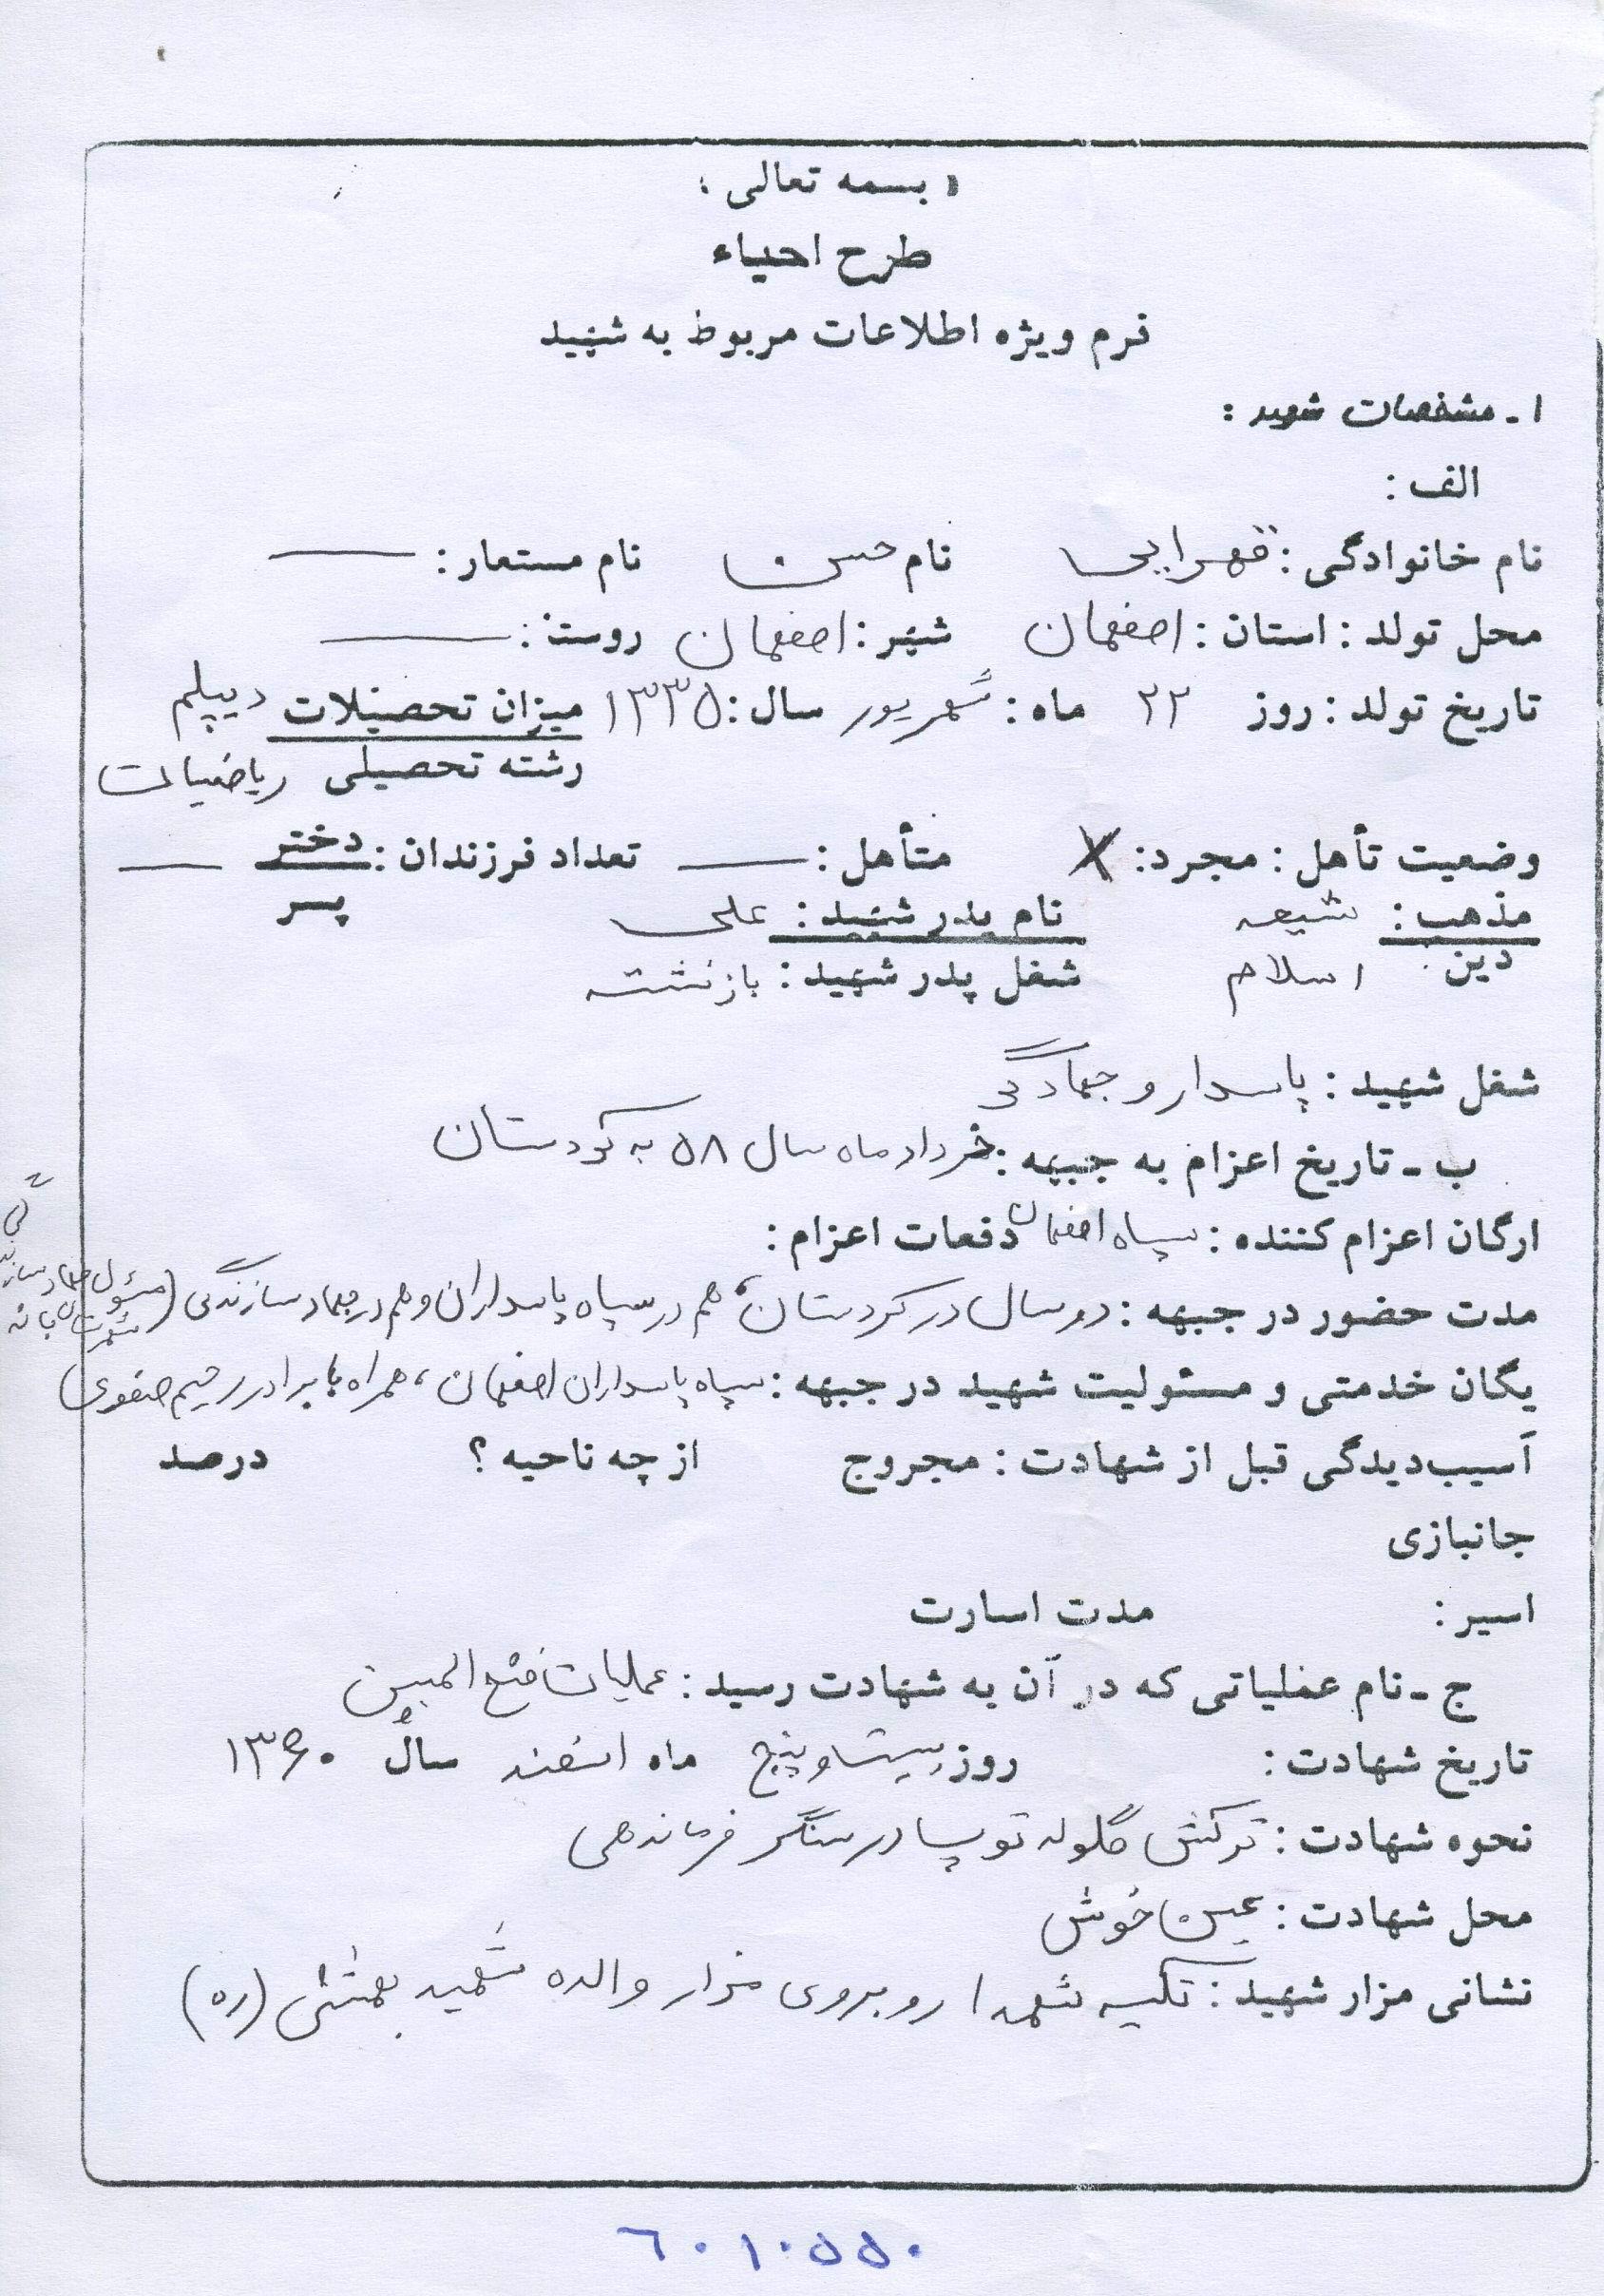 « بسمه تعالی »
طرح احیاء
فرم ویژه اطلاعات مربوط به شهید
۱ـ مشخصات شهید :
الف :
نام خانوادگی : قهرایی نام حسن نام مستعار : ــــ
محل تولد : استان : اصفهان شهر : اصفهان روستا : ــــ
تاریخ تولد : روز ۲۲ ماه : شهریور سال : ۱۳۳۵ میزان تحصیلات دیپلم
رشته تحصیلی ریاضیات
وضعیت تأهل : مجرد : X متأهل : ــــ تعداد فرزندان : دختر ــــ
پسر
مذهب : شیعه نام پدر شهید : علی
دین : اسلام شغل پدر شهید : بازنشسته
شغل شهید : پاسدار و جهادگر
ب ـ تاریخ اعزام به جبهه : خرداد ماه سال ۵۸ به کردستان
ارگان اعزام کننده : سپاه اصفهان دفعات اعزام :
مدت حضور در جبهه : دو سال در کردستان، هم در سپاه پاسداران و هم در جهاد سازندگی (مسئول جهاد سازندگی شهرستان بانه
یگان خدمتی و مسئولیت شهید در جبهه : سپاه پاسداران اصفهان، همراه با برادر رحیم صفوی)
آسیب‌دیدگی قبل از شهادت : مجروح از چه ناحیه ؟ درصد
جانبازی
اسیر : مدت اسارت
ج ـ نام عملیاتی که در آن به شهادت رسید : عملیات فتح المبین
تاریخ شهادت : روز بیست و پنج ماه اسفند سال ۱۳۶۰
نحوه شهادت : ترکش گلوله توپ در سنگر فرماندهی
محل شهادت : عین خوش
نشانی مزار شهید : تکیه شهدا روبروی مزار والده شهید بهشتی (ره)
۶۰۱۰۵۵۰